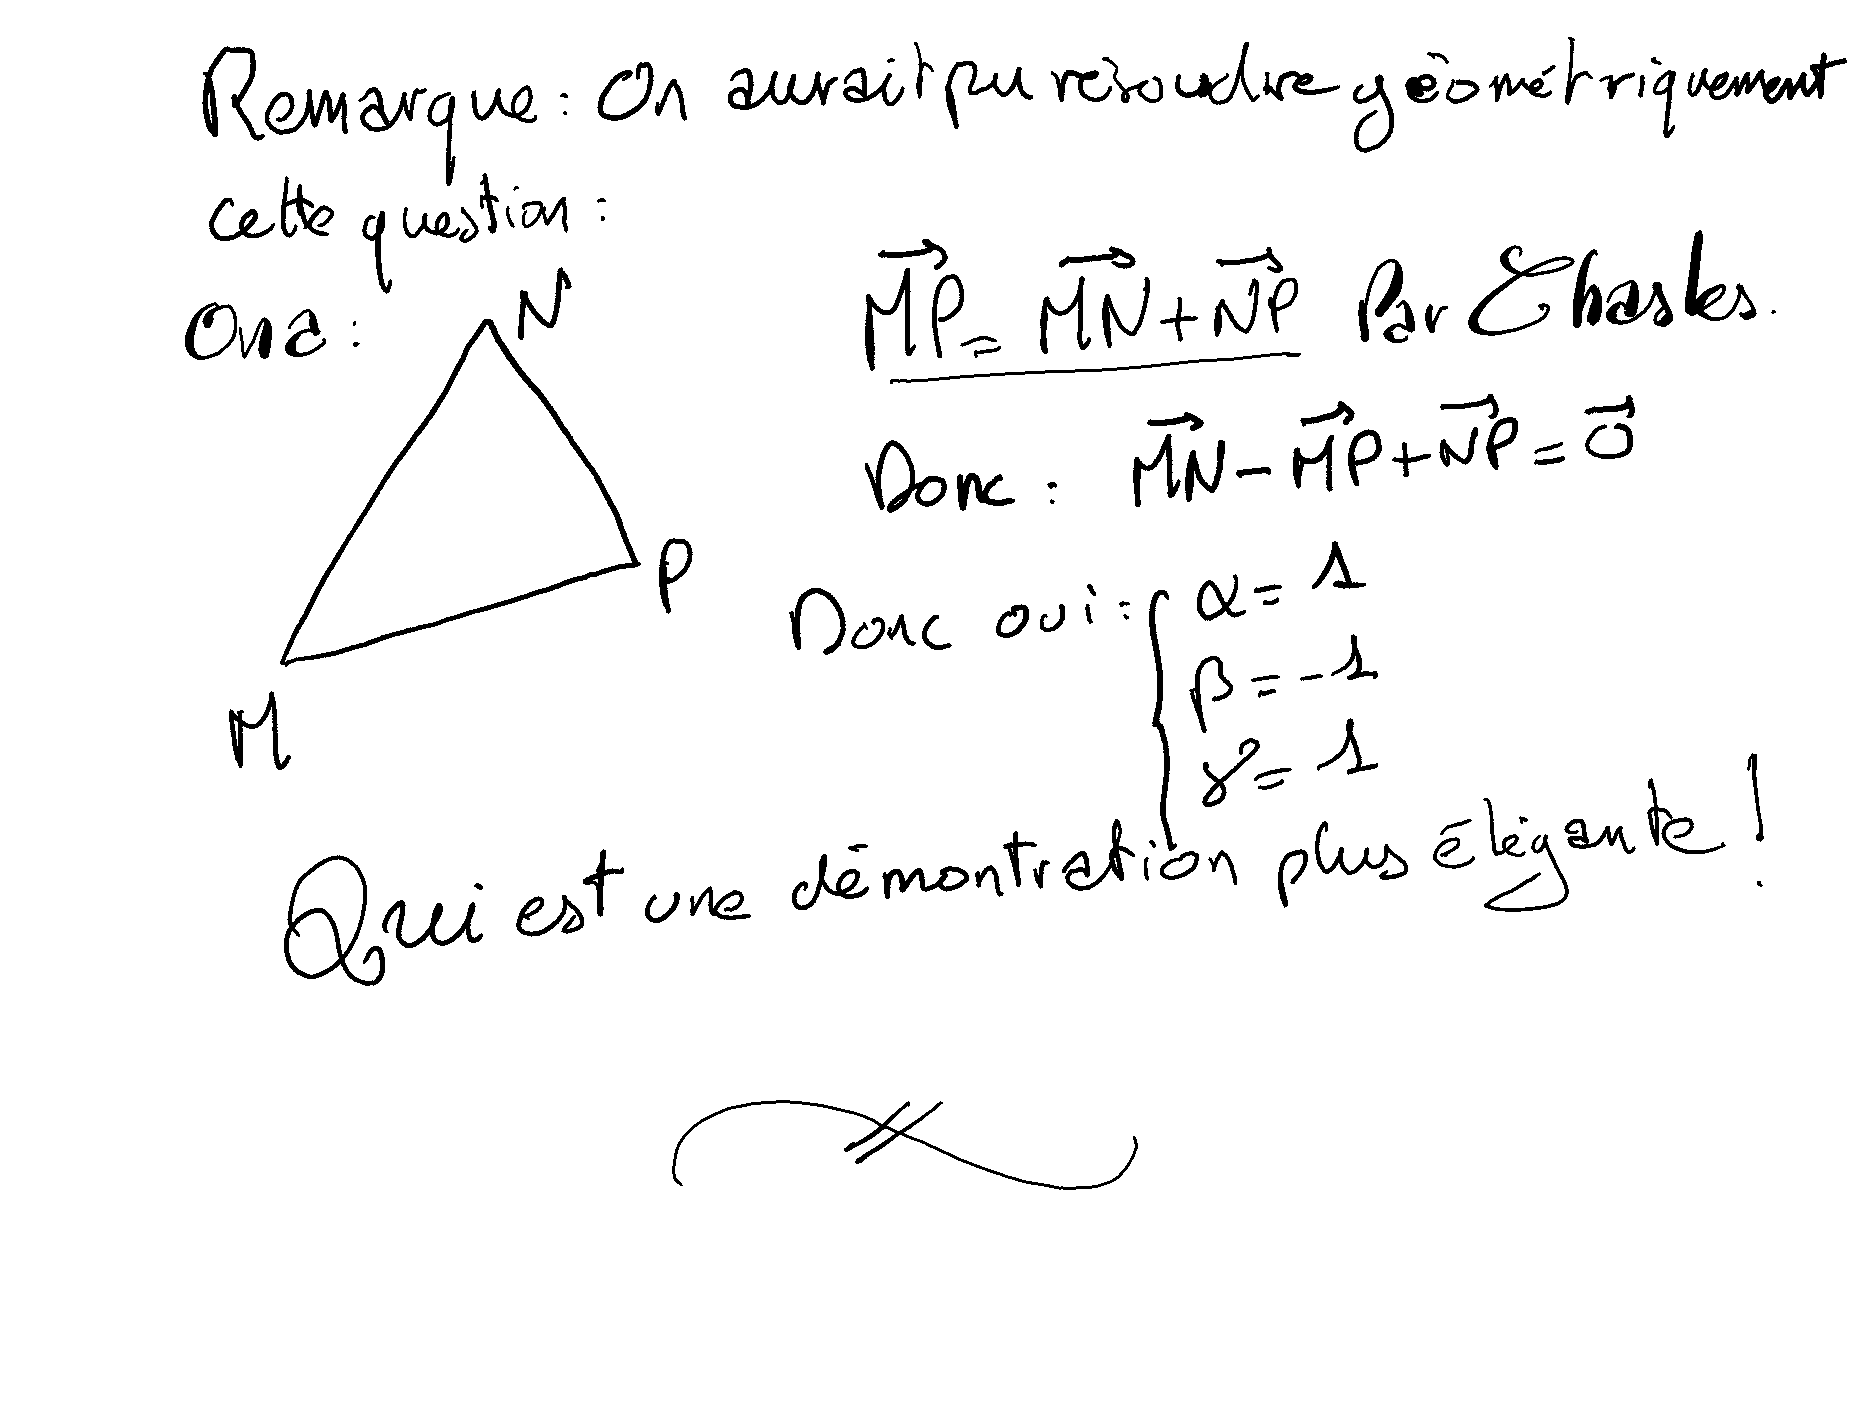 Remarque : On aurait pu résoudre géométriquement
cette question :
On a :
N
P
M
$\overrightarrow{MP} = \overrightarrow{MN} + \overrightarrow{NP}$ Par Chasles.
Donc : $\overrightarrow{MN} - \overrightarrow{MP} + \overrightarrow{NP} = \vec{0}$
Donc oui : { α = 1
β = -1
γ = 1
Qui est une démontration plus élégante !